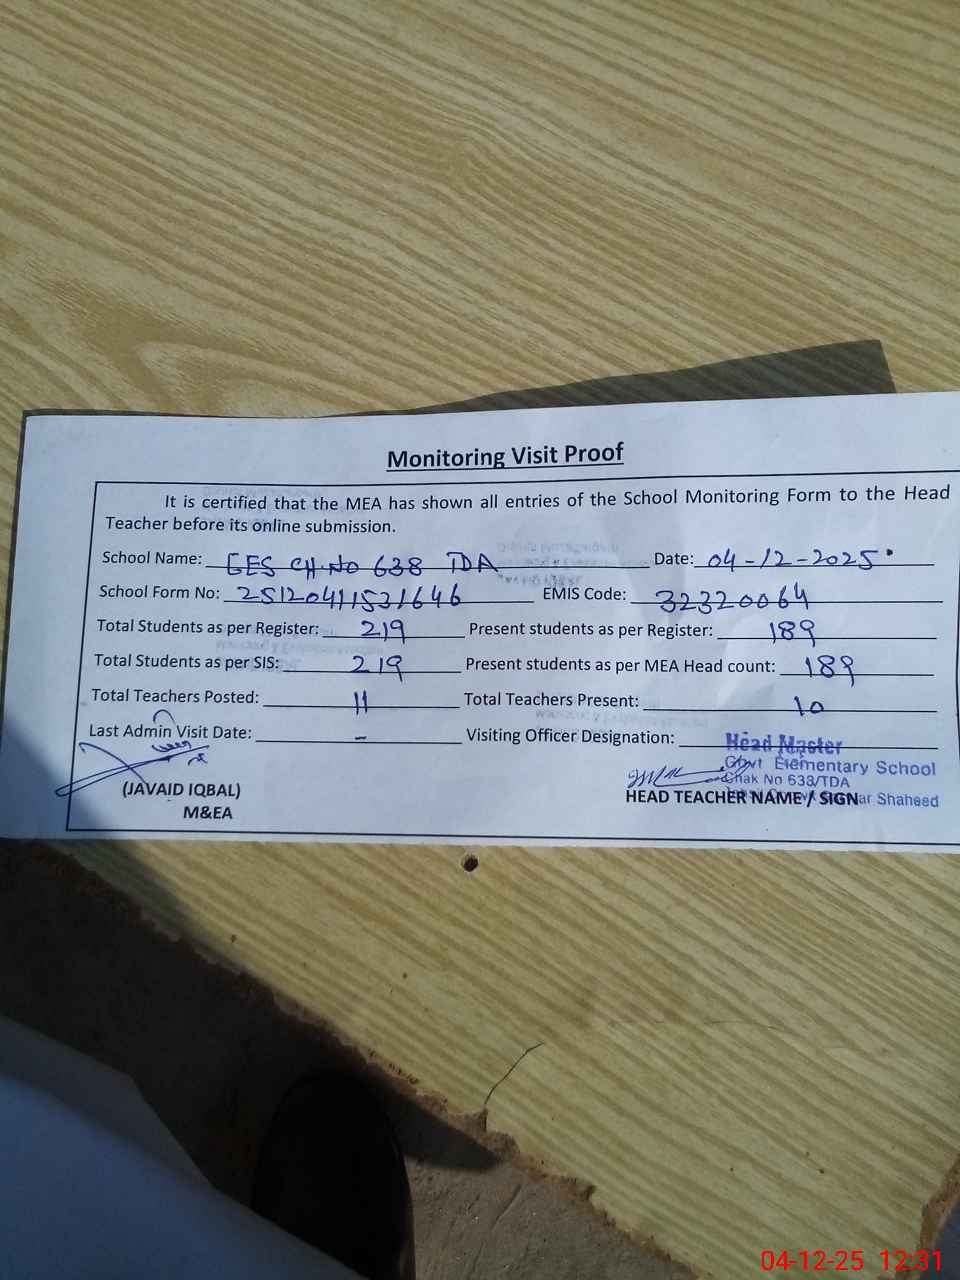 Monitoring Visit Proof
It is certified that the MEA has shown all entries of the School Monitoring Form to the Head
Teacher before its online submission.
School Name: GES CH.No 638 TDA Date: 04-12-2025
School Form No: 25120411531646 EMIS Code: 32320064
Total Students as per Register: 219 Present students as per Register: 189
Total Students as per SIS: 219 Present students as per MEA Head count: 189
Total Teachers Posted: 11 Total Teachers Present: 10
Last Admin Visit Date: - Visiting Officer Designation:
Head Master
Govt Elementary School
Chak No 638/TDA
(JAVAID IQBAL)
M&EA
HEAD TEACHER NAME / SIGN
Shaheed
04-12-25 12:31